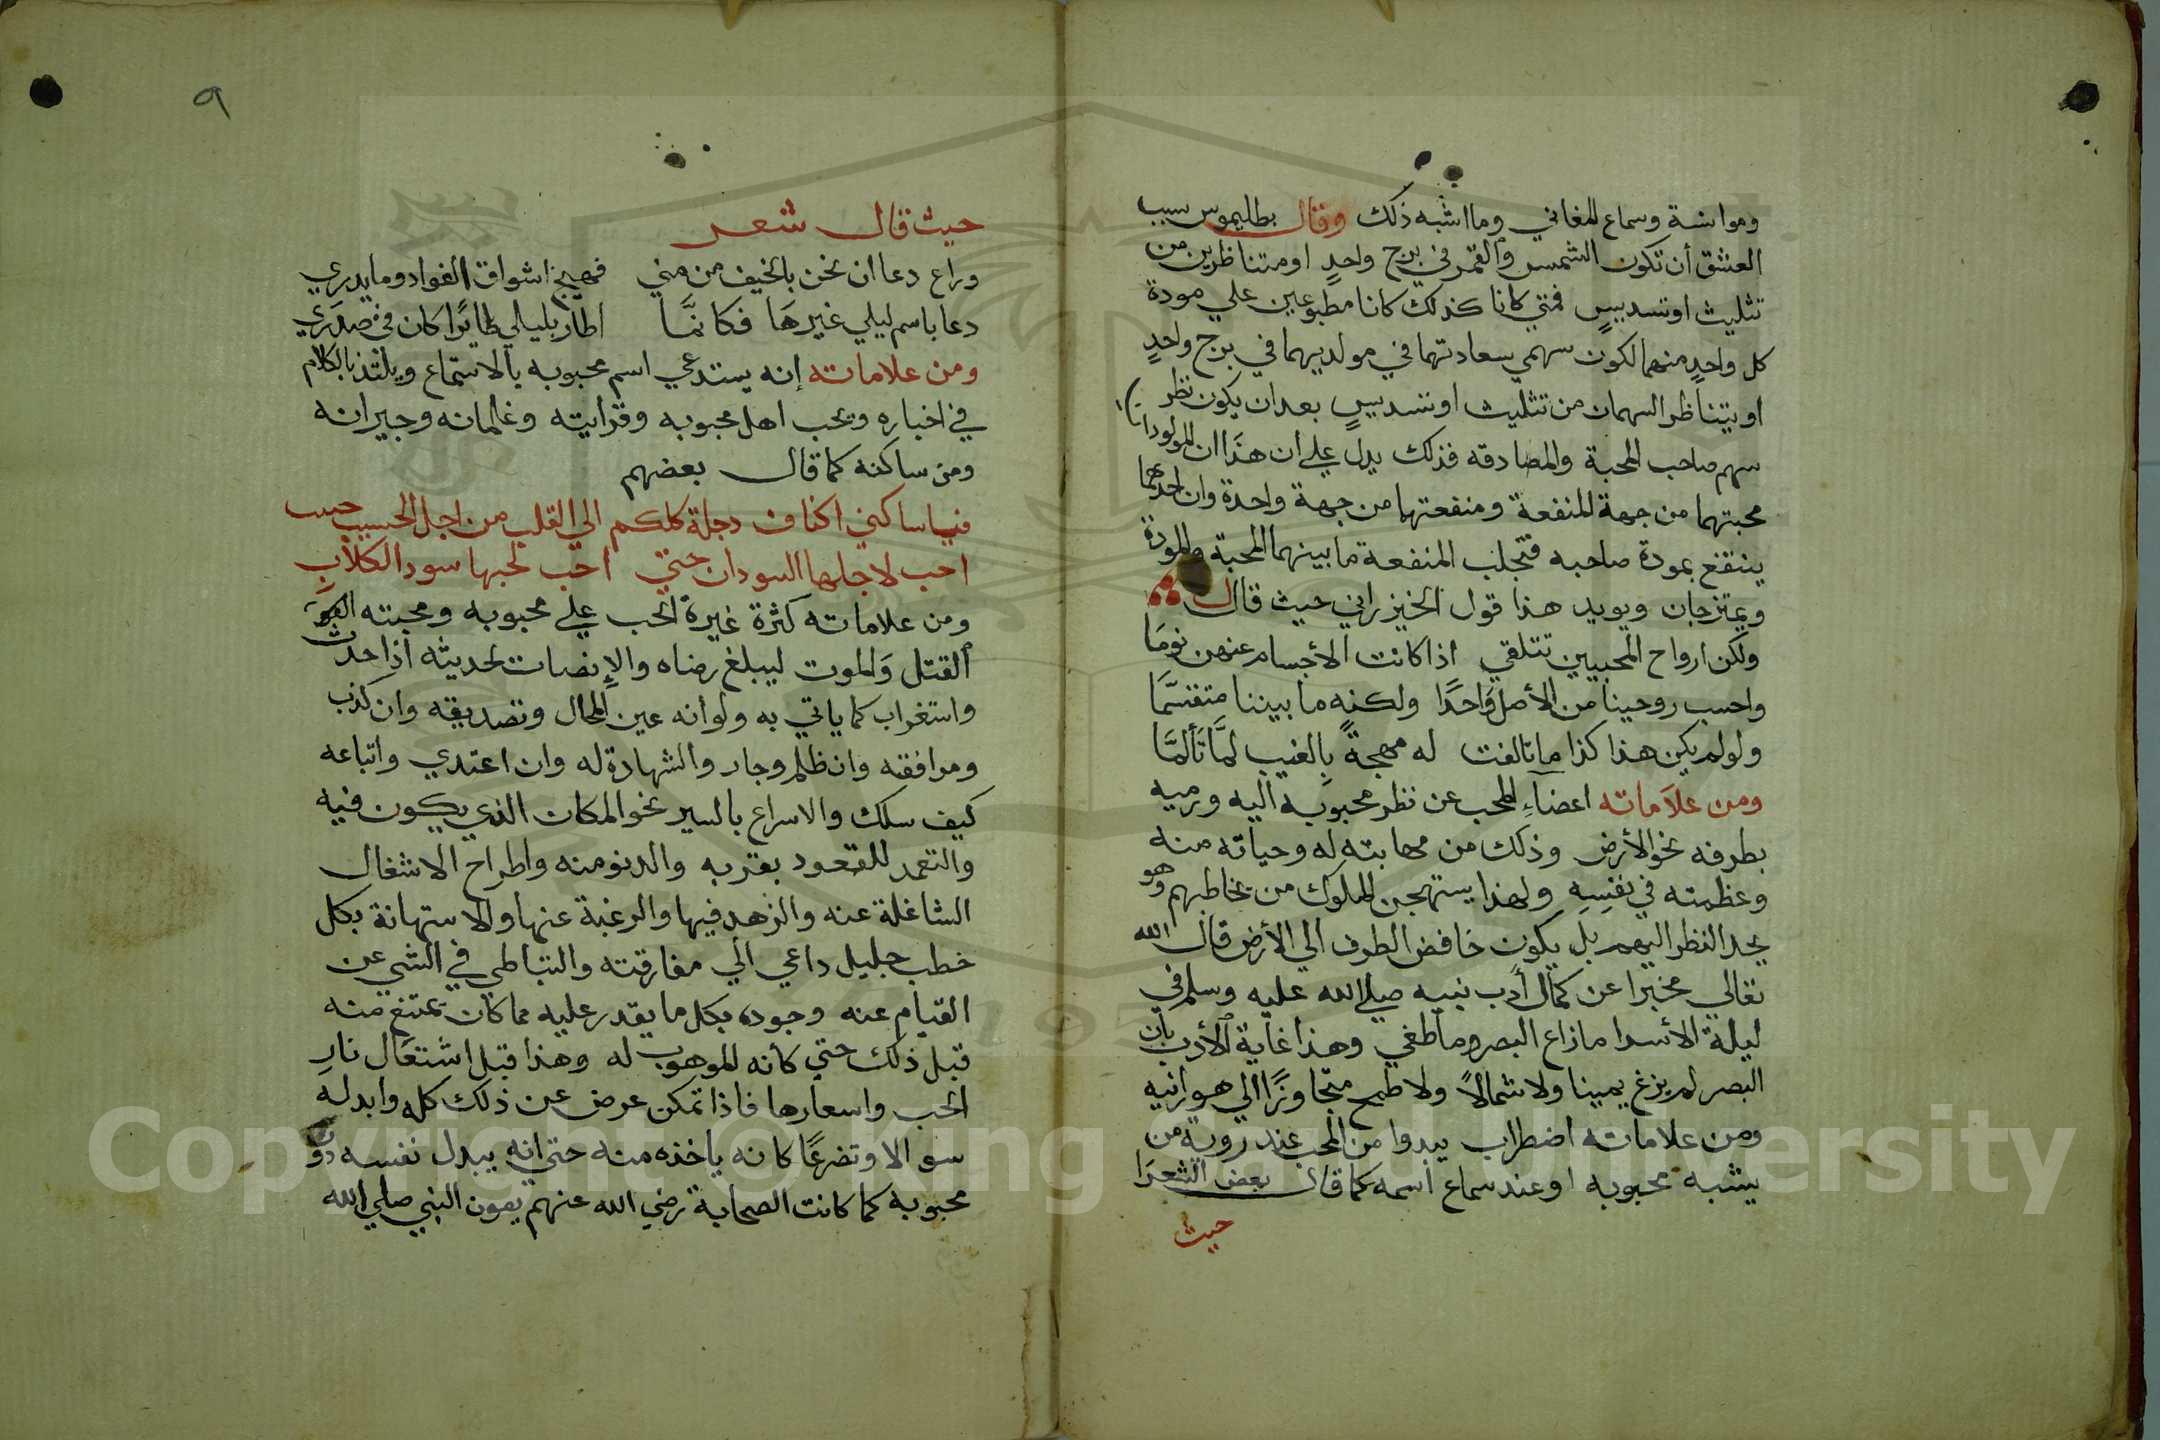 ومواسة وسماع المغاني وما اشبه ذلك وقال بطليموس سبب
العشق أن تكون الشمس والقمر في برج واحدٍ او متناظرين من
تثليث او تسديسٍ فمتي كانا كذلك كانا مطبوعين علي مودة
كل واحدٍ منهما لكون سهمي سعادتهما في مولديهما في برج واحدٍ
او يتناظر السهمان من تثليث او تسديسٍ بعد ان يكون نظر
سهم صاحب المحبة والمصادقه فذلك يدل علي أن هذا ان المولودان
محبتهما من جهة المنفعة ومنفعتها من جهة واحدة وان احدهما
ينتفع بمودة صاحبه فتجلب المنفعة ما بينهما المحبة والمودة
ويمتزجان ويويد هذا قول الخيزراني حيث قال
ولكن ارواح المحبيين تتلقي اذا كانت الأجسام عنهن نومَا
واحسب روحينا من الأصل وَاحدًا ولكنه ما بيننا متقسَّمَا
ولو لم يكن هذا كذا ما تالفت له مهجةً بالغيب لمَّا تَألمَّا
ومن علاَماته اعضاءِ المحب عن نظر محبوبه اليه ورميه
بطرفه نحو الأرض وذلك من مهابته له وحياته منه
وعظمته في نفسِهِ ولهذا يستهجن الملوك من يخاطبهم وهو
يحد النظر اليهم بل يكون خافض الطرف الي الأرض قال الله
تعالي مخبرا عن كمال أدب نبيه صلي الله عليه وسلم في
ليلة الأسرا ما زاع البصر وما طغي وهذا غاية الأدب بان
البصر لم يزغ يمينا ولا شمالاً ولا طمح متجاوزًا الي هو رانيه
ومن علاماته اضطراب يبدوا من المحب عند روية من
يشبه محبوبه او عند سماع اسمه كما قال بعض الشعرَا
حيث
٩
حيث قال شعر
وراع دعا ان نحن بالخيف من مني فهيج اشواق الفواد وما يدري
دعا باسم ليلي غيرهَا فكانمَّا اطار بليلي طائرًا كان في صدَري
ومن علاماته إنه يستدعي اسم محبوبه بالاستماع ويلتذ بالكلام
في اخباره ويحب اهل محبوبه وقرابته وغلمانه وجيرانه
ومن ساكنه كما قال بعضهم
فيا ساكني اكناف دجلة كلكم الي القلب من اجل الحبيب حبيب
احب لاجلها السودان حتي احب لحبها سود الكلابِ
ومن علاماته كثرة غيرة الحب علي محبوبه ومحبته
القتل وَالموت ليبلغ رضاه والإنصات لحديثه اذا حدث
واستغراب كما ياتي به ولو أنه عين المحال وتصديقه وان كذب
ومرافقته وان ظلم وجار والشهادة له وان اعتدي واتباعه
كيف سلك والاسراع بالسير نحو المكان الذي يكون فيه
والتعمد للقعود بقربه والدنو منه واطراح الاشغال
الشاغلة عنه والزهد فيها والرغبة عنها والاستهانة بكل
خطب جليل داعي الي مفارقته والتباطي في الشي عن
القيام عنه وجوده بكل ما يقدر عليه مما كان يمتنع منه
قبل ذلك حتي كانه الموهوب له وهذا قبل اشتعَال نارِ
الحب واسعارها فاذا تمكن عرض عن ذلك كله وابدله
سوالا وتضرعًا كانه ياخذه منه حتي انه يبدل نفسه دون
محبوبه كما كانت الصحابة رضي الله عنهم يقون النبي صلي الله
Copyright © King University